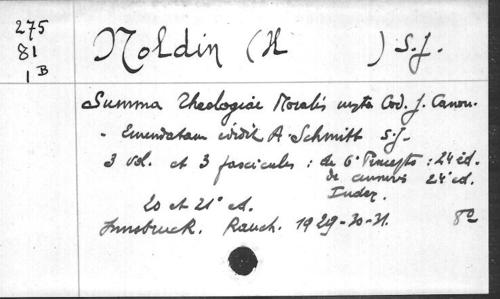 275
81
1 B
Noldin (H ) S.J.
Summa Theologiae Moralis juxta Cod. J. Canon.
- Emendatam edidit A Schmitt S.J-
3 vol. et 3 fascicules : de 6° Precepto : 24 éd.
de censuris 24 éd.
Index.
20 et 21° ed.
Innsbruck. Rauch. 1929-30-31. 8º